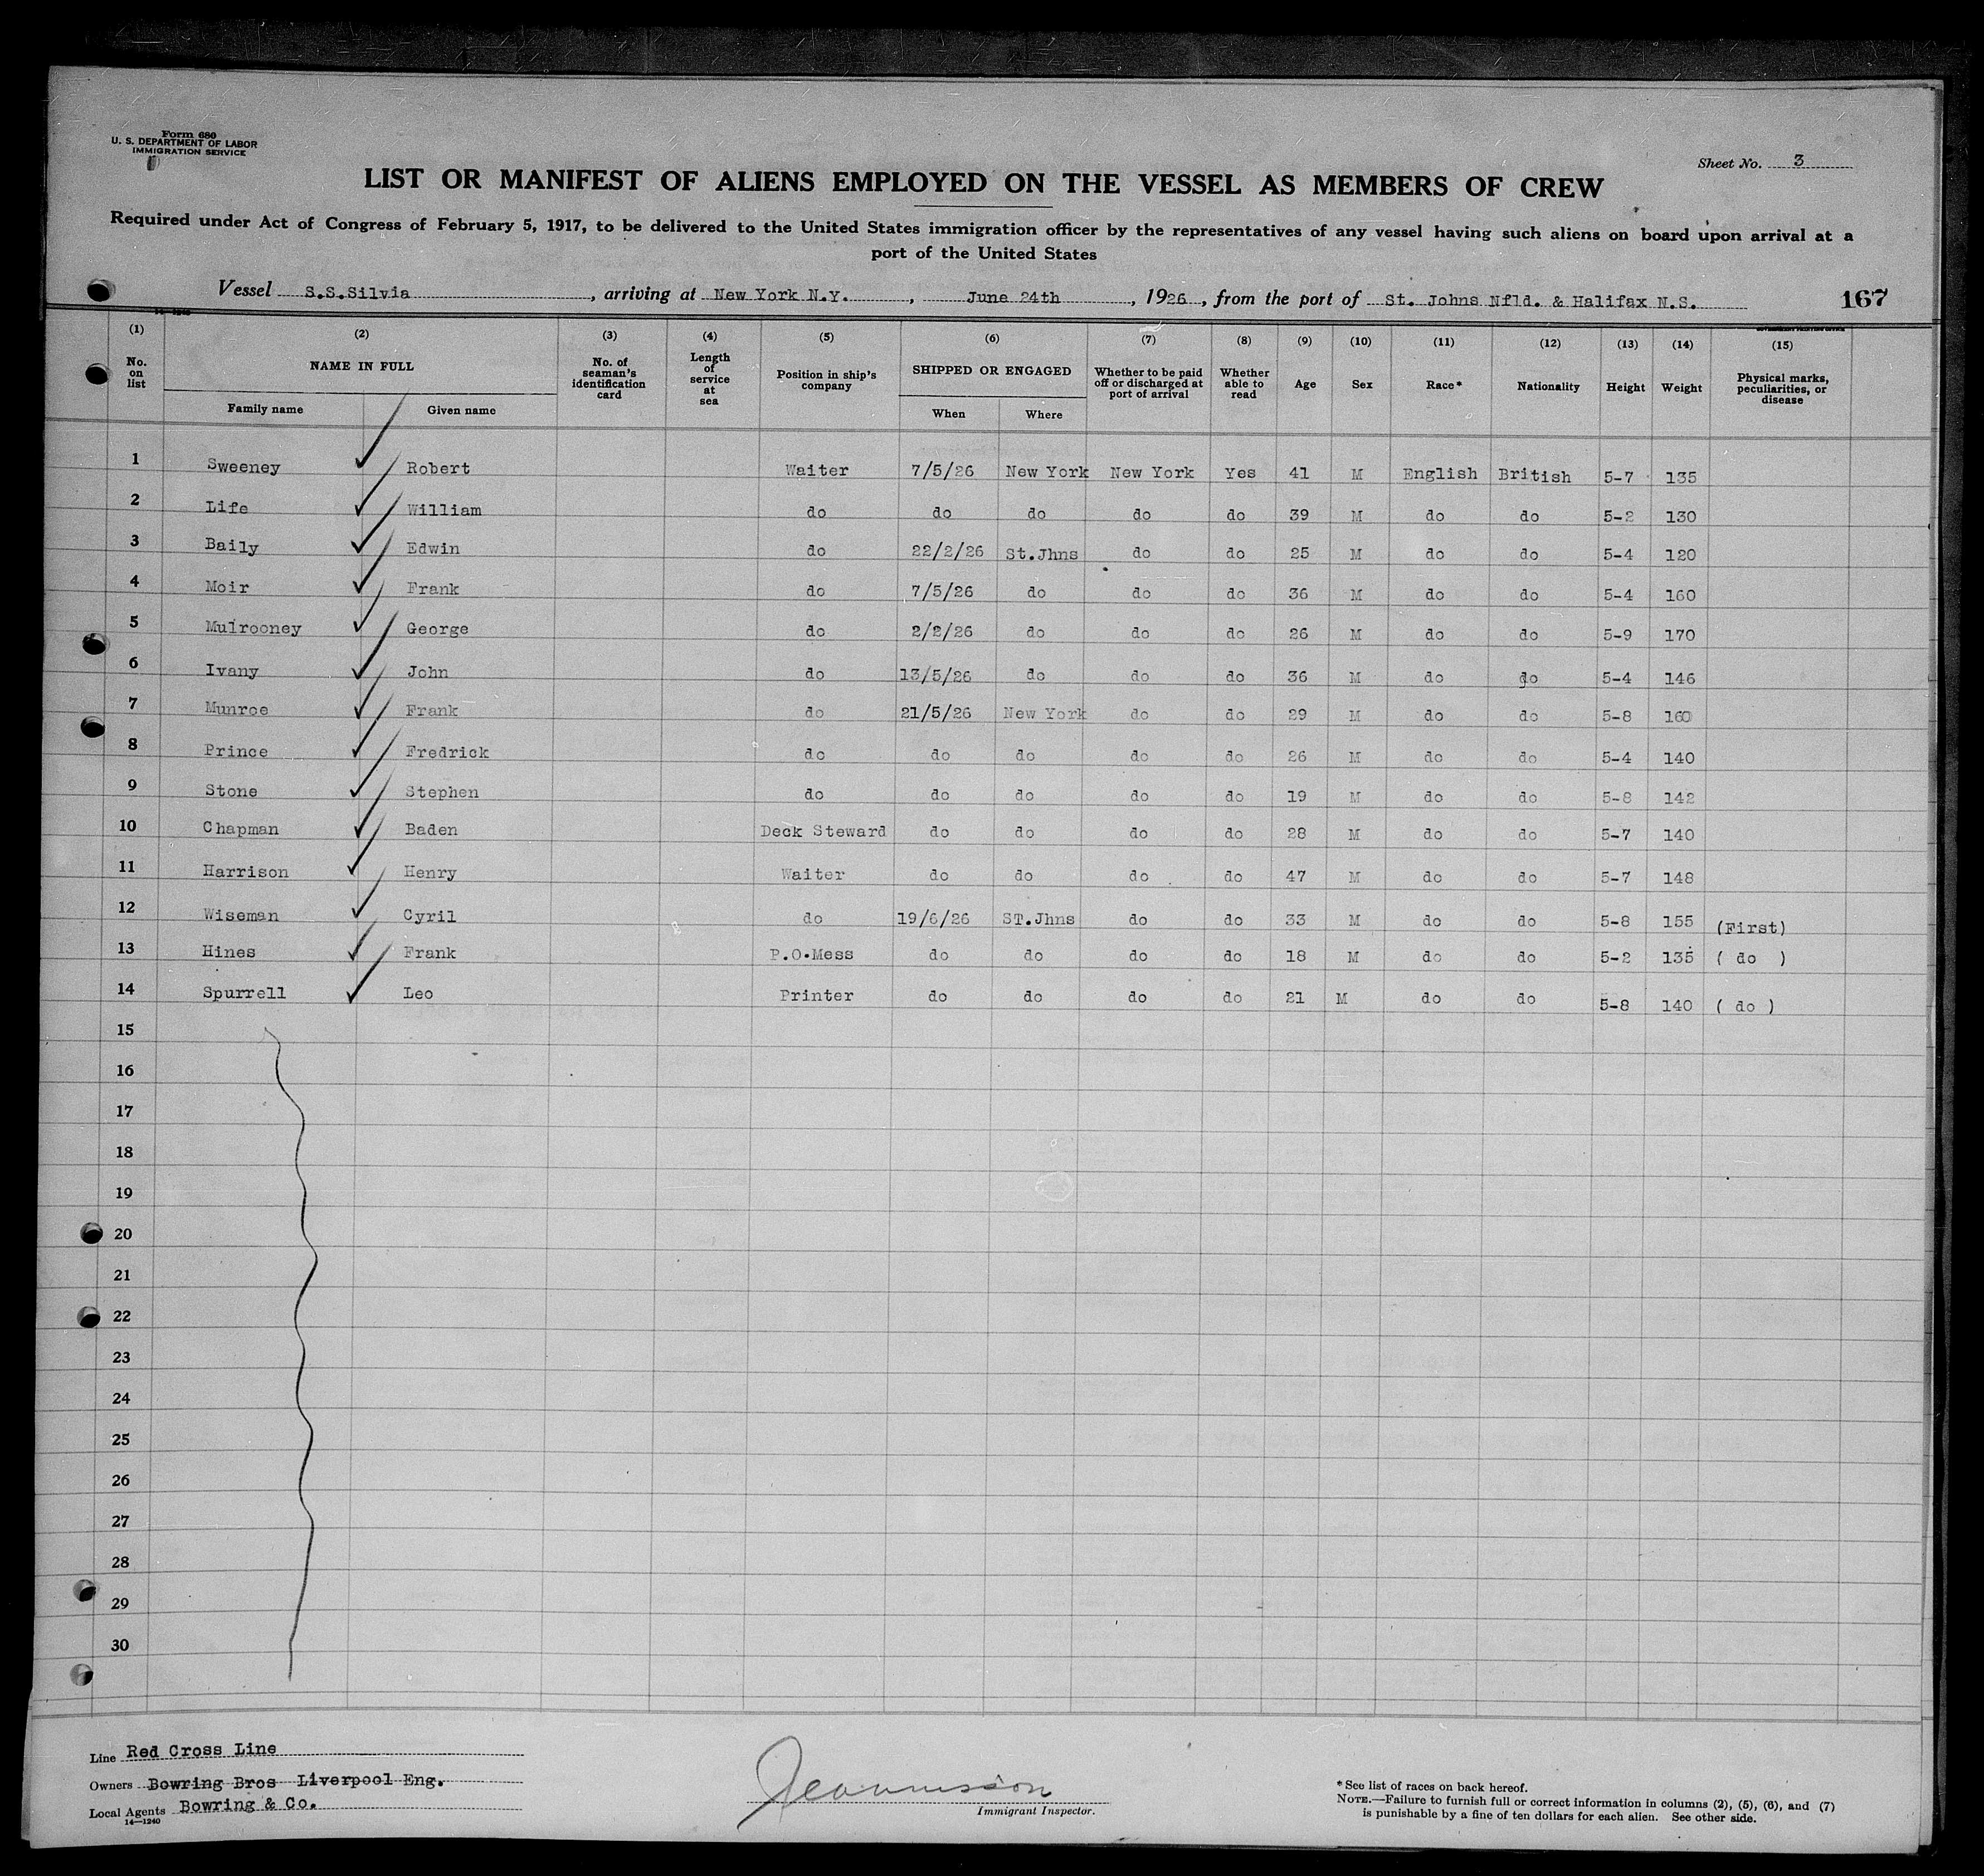 Form 680
U. S. DEPARTMENT OF LABOR
IMMIGRATION SERVICE
Sheet No. 3
LIST OR MANIFEST OF ALIENS EMPLOYED ON THE VESSEL AS MEMBERS OF CREW
Required under Act of Congress of February 5, 1917, to be delivered to the United States immigration officer by the representatives of any vessel having such aliens on board upon arrival at a
port of the United States
Vessel S.S.Silvia, arriving at New York N.Y., June 24th, 1926, from the port of St. Johns Nfld. & Halifax N.S. 167
(1) (2) (3) (4) (5) (6) (7) (8) (9) (10) (11) (12) (13) (14) (15)
No. on list NAME IN FULL No. of seaman's identification card Length of service at sea Position in ship's company SHIPPED OR ENGAGED Whether to be paid off or discharged at port of arrival Whether able to read Age Sex Race* Nationality Height Weight Physical marks, peculiarities, or disease
Family name Given name When Where
1 Sweeney Robert Waiter 7/5/26 New York New York Yes 41 M English British 5-7 135
2 Life William do do do do do 39 M do do 5-2 130
3 Baily Edwin do 22/2/26 St.Jhns do do 25 M do do 5-4 120
4 Moir Frank do 7/5/26 do do do 36 M do do 5-4 160
5 Mulrooney George do 2/2/26 do do do 26 M do do 5-9 170
6 Ivany John do 13/5/26 do do do 36 M do do 5-4 146
7 Munroe Frank do 21/5/26 New York do do 29 M do do 5-8 160
8 Prince Fredrick do do do do do 26 M do do 5-4 140
9 Stone Stephen do do do do do 19 M do do 5-8 142
10 Chapman Baden Deck Steward do do do do 28 M do do 5-7 140
11 Harrison Henry Waiter do do do do 47 M do do 5-7 148
12 Wiseman Cyril do 19/6/26 ST.Jhns do do 33 M do do 5-8 155 (First)
13 Hines Frank P.O.Mess do do do do 18 M do do 5-2 135 ( do )
14 Spurrell Leo Printer do do do do 21 M do do 5-8 140 ( do )
15
16
17
18
19
20
21
22
23
24
25
26
27
28
29
30
Line Red Cross Line
Owners Bowring Bros Liverpool Eng.
Local Agents Bowring & Co.
14—1240
Immigrant Inspector.
* See list of races on back hereof.
NOTE.—Failure to furnish full or correct information in columns (2), (5), (6), and (7)
is punishable by a fine of ten dollars for each alien. See other side.